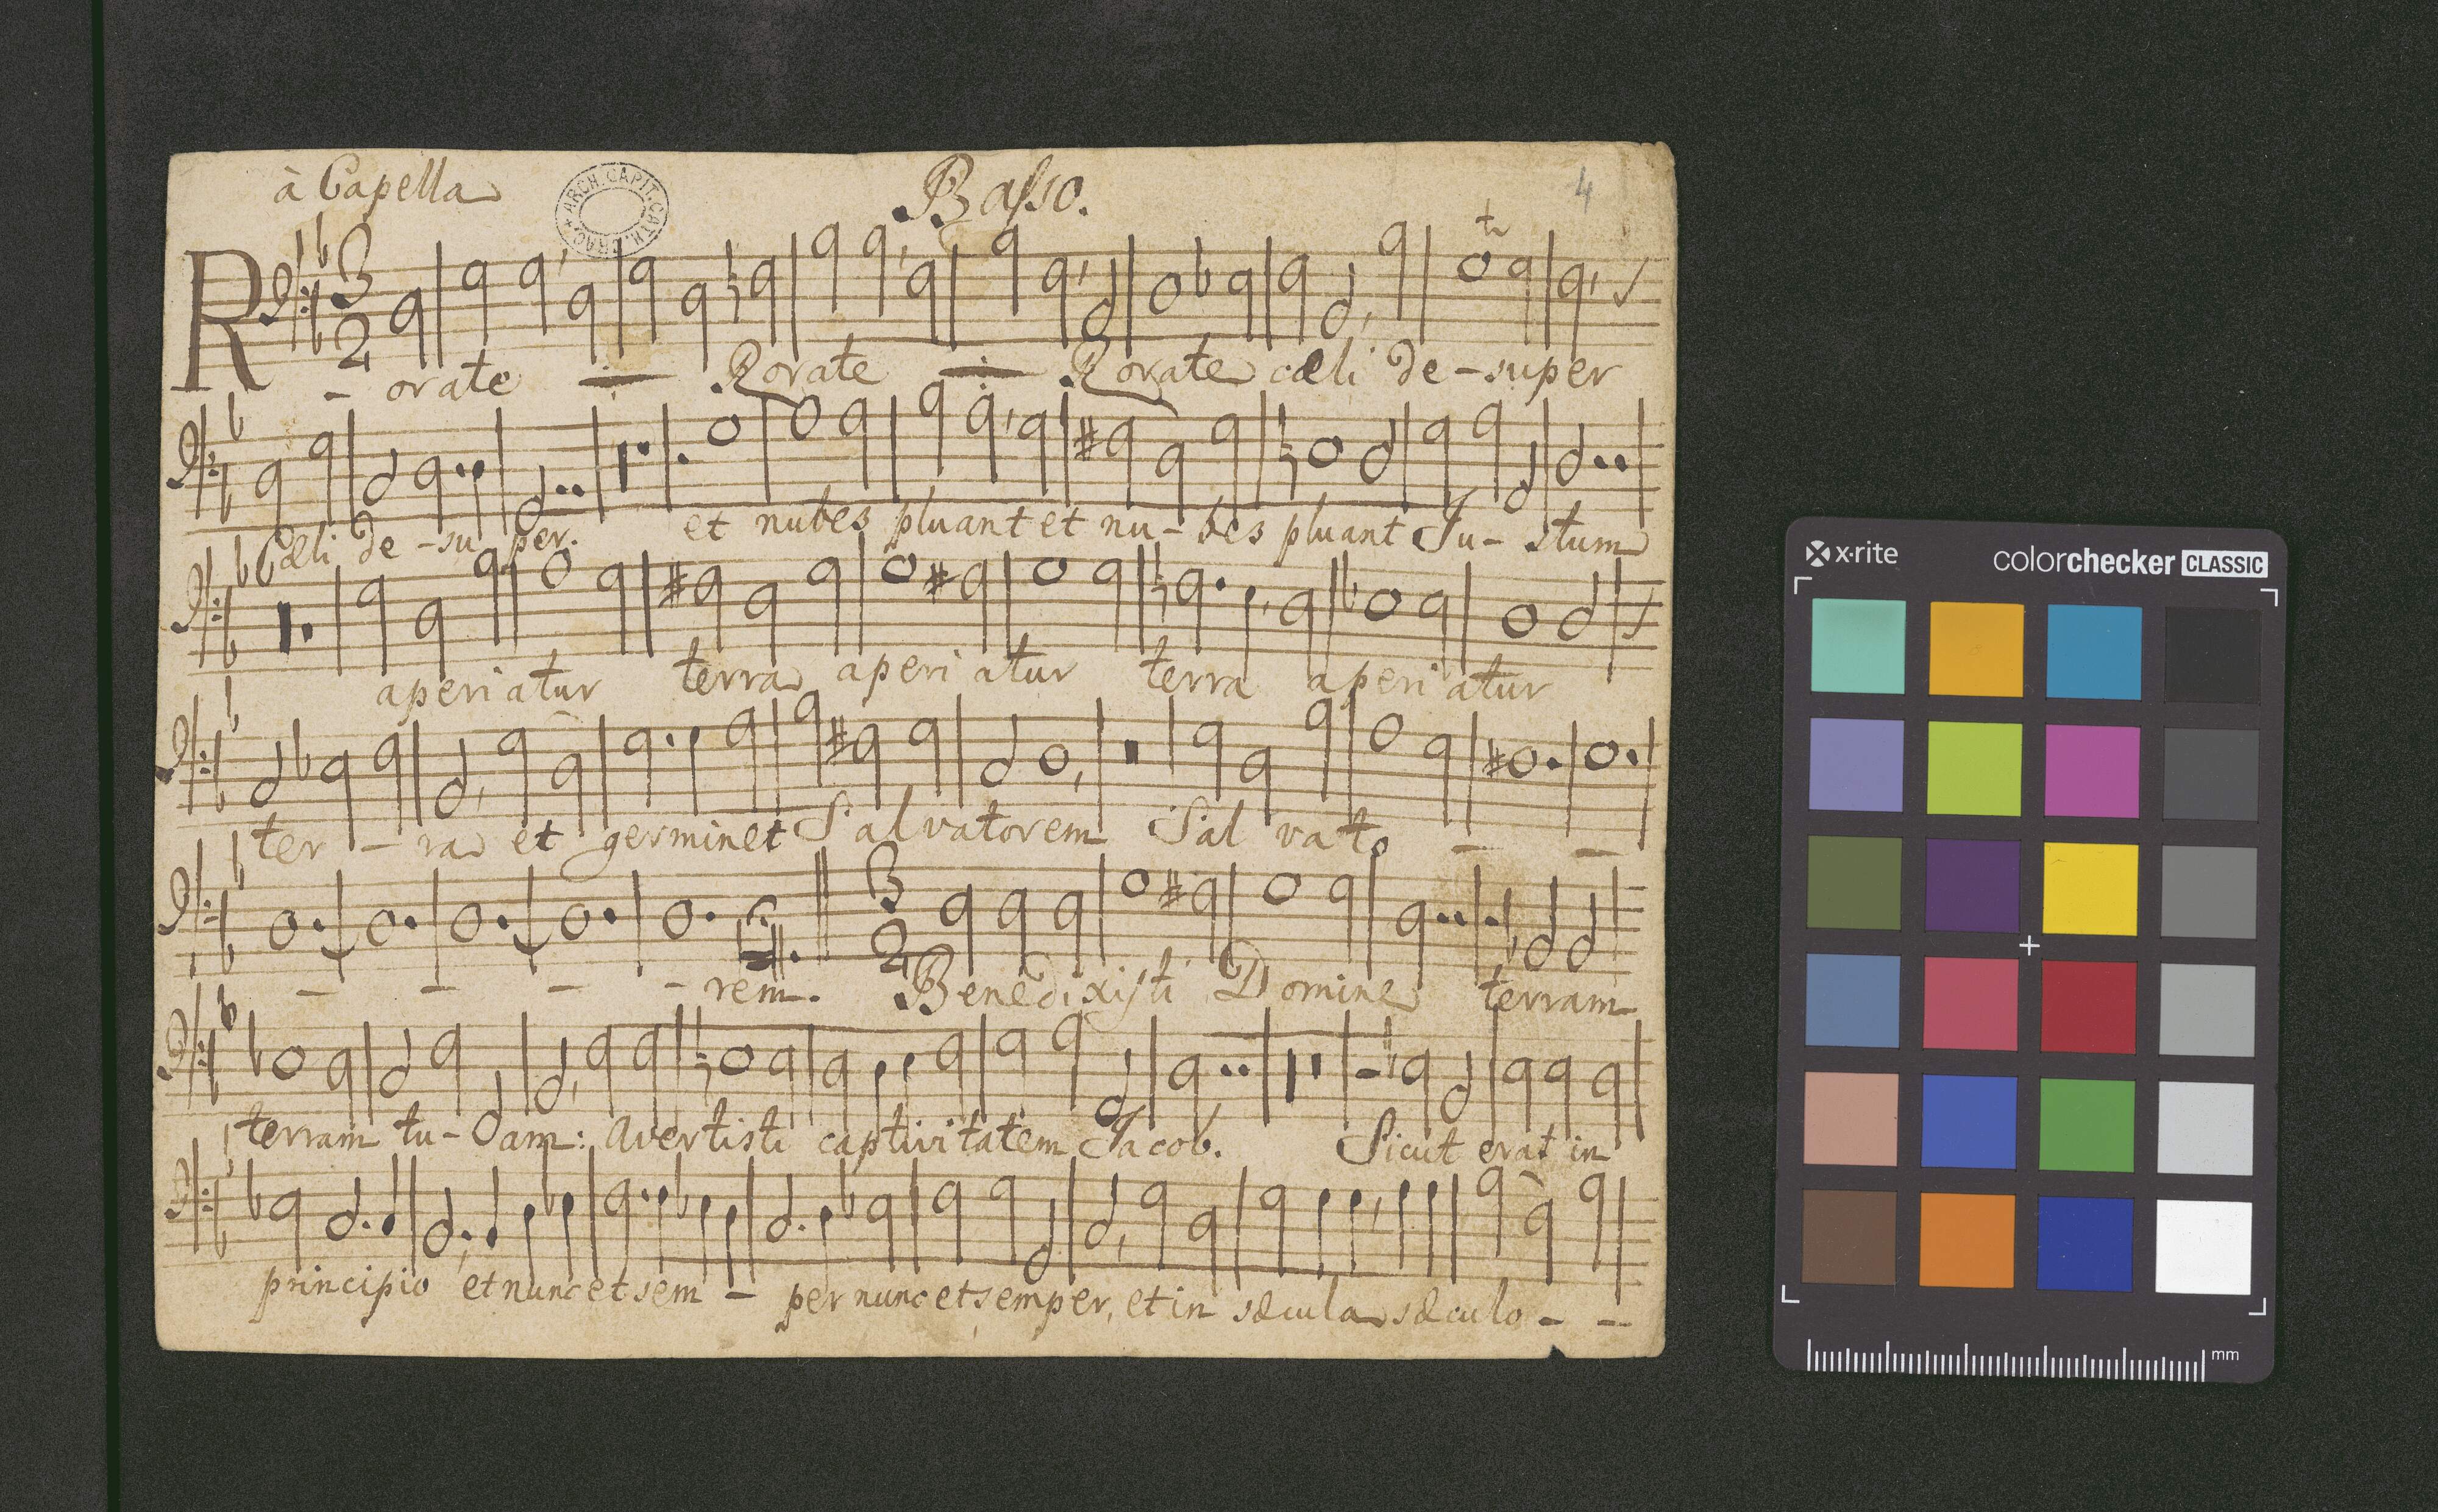 à Capella Basso. 4
ARCH. CAPIT. CATH. CRAC.
3
2
Rorate Rorate Rorate cæli de-super
Cæli de-su per. et nubes pluant et nu-bes pluant Ju-stum
aperiatur terra aperi atur terra aperi atur
ter - ra et germinet Salvatorem Sal vato - -
3
2
- - - - rem. Benedixisti Domine terram
terram tu-am: avertisti captivitatem Jacob. Sicut erat in
principio et nunc et sem - per nunc et semper, et in sæcula sæculo - -
x·rite
colorchecker CLASSIC
mm